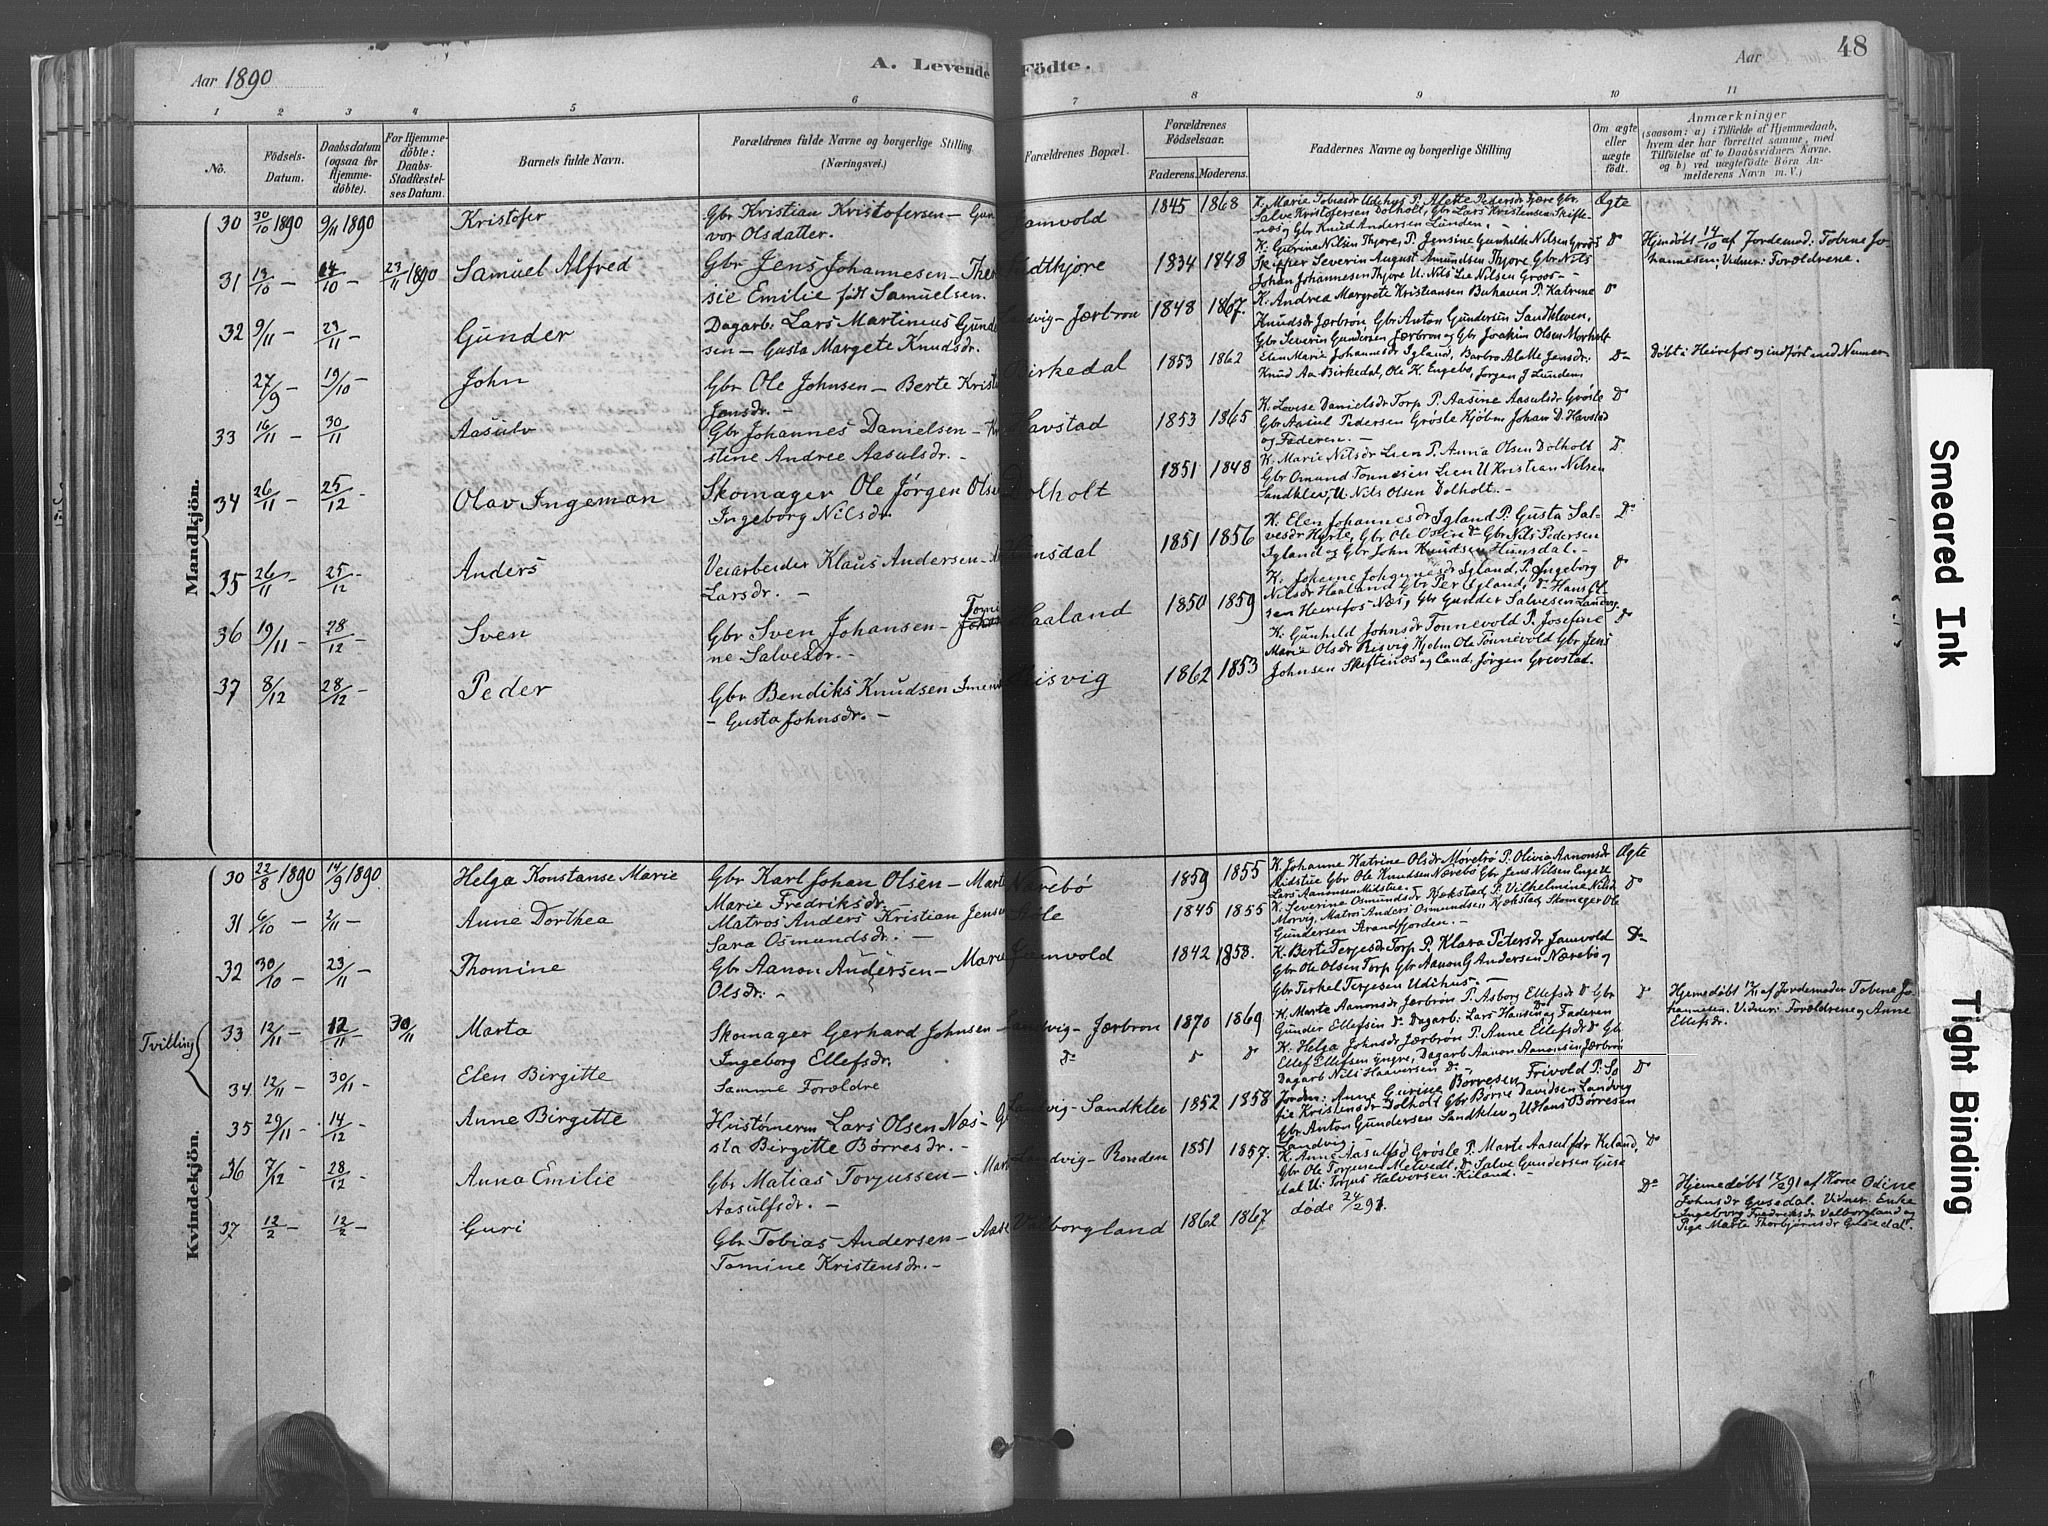 48
Aar 1890
A. Levende Födte.
Aar
1 2 3 4 5 6 7 8 9 10 11
No.
Födsels-
Datum.
Daabsdatum
(ogsaa for
Hjemme-
döbte).
For Hjemme-
döbte:
Daabs-
Stadfæstel-
ses Datum.
Barnets fulde Navn.
Forældrenes fulde Navne og borgerlige Stilling
(Næringsvei.)
Forældrenes Bopæl.
Forældrenes
Födselsaar.
Faderens. Moderens.
Faddernes Navne og borgerlige Stilling
Om ægte
eller
uægte
födt.
Anmærkninger
(saasom: a) i Tilfælde af Hjemmedaab,
hvem der har forrettet samme, med
Tilföielse af to Daabsvidners Navne.
og b) ved uægtefödte Börn An-
melderens Navn m. V.)
Mandkjön.
30 30/10 1890 9/11 1890 Kristofer
Gbr Kristian Kristofersen — Gun
vor Olsdatter.
Jamvold 1845 1868
K. Marie Tobiasdr Udihus P. Alette Pedersdr Fjære Gbr.
Salve Kristofersen Dolholt, Gbr Lars Kristensen Skifte-
næs og Gbr Knud Andersen Lunden. —
Ægte
31 13/10 — 14/10 — 23/11 1890 Samuel Alfred
Gbr Jens Johannesen — The
sie Emilie født Samuelsen.
1834 1848
K. Gurine Nilsen Thjore, P. Jensine Gunhilde Nilsen Groos
Skipper Severin August Amundsen Thjore Gbr Nils
Johan Johannesen Thjore U. Nils Lie Nilsen Groos —
Do
Hjmdøbt 14/10 af Jordemod: Tobine Jo-
hannesen; Vidner: Forældrene.
32 9/11 — 23/11 — Gunder
Dagarb: Lars Martinius Gunde
sen — Gusta Margete Knudsdr.
Landvig — Jærbron 1848 1867.
K. Andrea Margrete Kristiansen Buhaven P. Katrine
Knudsdr Jærbrøn Gbr Anton Gundersen Sandkleven,
Gbr Severin Gundersen Jærbron og Gbr Joakim Olsen Morholt
Do
27/9 19/10 — John
Gbr Ole Johnsen — Berte Krist
Jensdr. —
Birkedal 1853 1862
Elen Marie Johannesdr Igland, Barbro Alette Jensdr:
Knud Aa. Birkedal, Ole K. Engebo, Jørgen J Lunden
Do
Døbt i Heirefos og indført med Numer
33 16/11 — 30/11 Aasulv
Gbr Johannes Danielsen — K
stine Andree Aasulsdr. —
Havstad 1853 1865
K. Lovise Danielsdr Torp P. Aasine Aasulsdr Grøsle
Gbr Aasul Pedersen Grøsle Kjøbm Johan D. Havstad
og Faderen. —
Do
34 26/11 — 25/12 — Olav Ingeman
Skomager Ole Jørgen Ols
Ingeborg Nilsdr.
Dolholt 1851 1848
K. Marie Nilsdr Lien P. Anna Olsen Dolholt
Gbr Omund Tønnesen Lien U Kristian Nilsen
Sandklev, U. Nils Olsen Dolholt. —
Do
35 26/11 — 25/12 — Anders
Veiarbeider Klaus Andersen —
Larsdr. —
Hunsdal 1851 1856
K. Elen Johannesdr Igland P. Gusta Sal-
vesdr Hørte, Gbr Ole Olsen Do Gbr Nils Pedersen
Igland og Gbr John Knudsen Hunsdal. —
Do
36 19/11 — 28/12 — Sven
Gbr Sven Johansen — Tomi
ne Salvesdr. —
Haaland 1850 1859
K. Johanne Johannesdr Igland, P. Ingeborg
Nilsdr Haaland Gbr Per Igland, Do Hans Ol-
sen Heirefos-Næs, Gbr Gunder Salvesen
Do
37 8/12 — 28/12 — Peder
Gbr Bendiks Knudsen
— Gusta Johnsdr. —
Risvig 1862 1853
K. Gunhild Johnsdr Tonnevold P. Josefine
Marie Olsdr Risvig Kjøbm Ole Tonnevold Gbr Jens
Johnsen Skiftenes og Cand: Jørgen Grevstad.
Do
Kvindekjön.
30 22/8 1890 14/9 1890. Helga Konstanse Marie
Gbr Karl Johan Olsen — Marte
Marie Fredriksdr. —
Nærebö 1859 1855
K. Johanne Katrine Olsdr Møretrø P. Olivia Aanonsdr
Midstue Gbr Ole Knudsen Nærebö Gbr Jens Nilsen Enge
Lars Aanonsen Midstue. —
Ægte
31 6/10 — 2/11 — Anne Dorthea
Matros Anders Kristian Jens
Sara Osmundsdr. —
1845 1855
K. Severine Osmundsdr Rækstad P. Vilhelmine Nilsd
Morvig, Matros Anders Osmundsen Rækstad Skomager Ole
Gundersen Strandfjorden. —
Do
32 30/10 — 23/11 — Thomine
Gbr Aanon Andersen — Marie
Olsdr: —
Jamvold 1842 1858.
K. Berte Terjesdr Torp P. Klara Petersdr Jamvold
Gbr Ole Olsen Torp Gbr Aanon G Andersen Nærebö og
Gbr Terkel Terjesen Udihus. —
Do
Tvilling
33 12/11 — 12/11 — 30/11 Marta
Skomager Gerhard Johnsen
Ingeborg Ellefsdr.
Landvig — Jærbron 1870 1869
K. Marte Aanonsdr Jærbrøn P. Asborg Ellefsdr Do Gbr
Gunder Ellefsen Do Dagarb: Lars Hansen og Faderen
Do
Hjemedøbt 12/11 af Jordemoder Tobine Jo-
hannesen. Vidner: Forældrene og Anne
Ellefsdr.
34 12/11 — 30/11 — Elen Birgitte
Samme Forældre
Do Do Do
K. Helga Johnsdr Jærbrøn P. Anne Ellefsdr Do Gbr
Ellef Ellefsen yngre, Dagarb Aanon Aanonsen Jærbrøn
Dagarb Nils Haaversen Do —
Do
35 29/11 — 14/12 — Anne Birgitte
Hustømerm Lars Olsen Næs — G
sta Birgitte Børresdr. —
Landvig — Sandklev 1852 1858
Jordm: Anne Gurine Børresen Frivold P. So
fie Kristensdr Dolholt Gbr Børre Davidsen Landvig
Gbr Anton Gundersen Sandklev og U Hans Børresen
Landvig. —
36 7/12 — 28/12 — Anna Emilie
Gbr Matias Torjussen — Mart
Aasulfsdr. —
Landvig — Ronden 1851 1857.
K. Anne Aasulfsd Grøsle P. Marte Aasulfsdr Kiland,
Gbr Ole Torjusen Melvedt, Do Salve Gundersen Guse
dal U: Torjus Halvorsen Kiland —
Do
37 12/2 — 12/2 — Guri
Gbr Tobias Andersen — Aase
Tomine Kristensdr. —
Valborgland 1862 1867
døde 24/2 91.
Do
Hjemedøbt 12/2 91 af Kone Odine
Johnsdr Gusedal. Vidner: Enke
Ingeborg Fredriksdr Valborgland og
Pige Marte Thorbjørnsdr Gusedal.
Smeared Ink
Tight Binding